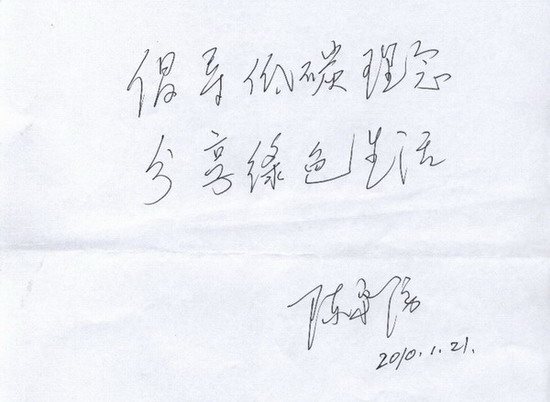 倡导低碳理念
分享绿色生活
陈
2010.1.21.